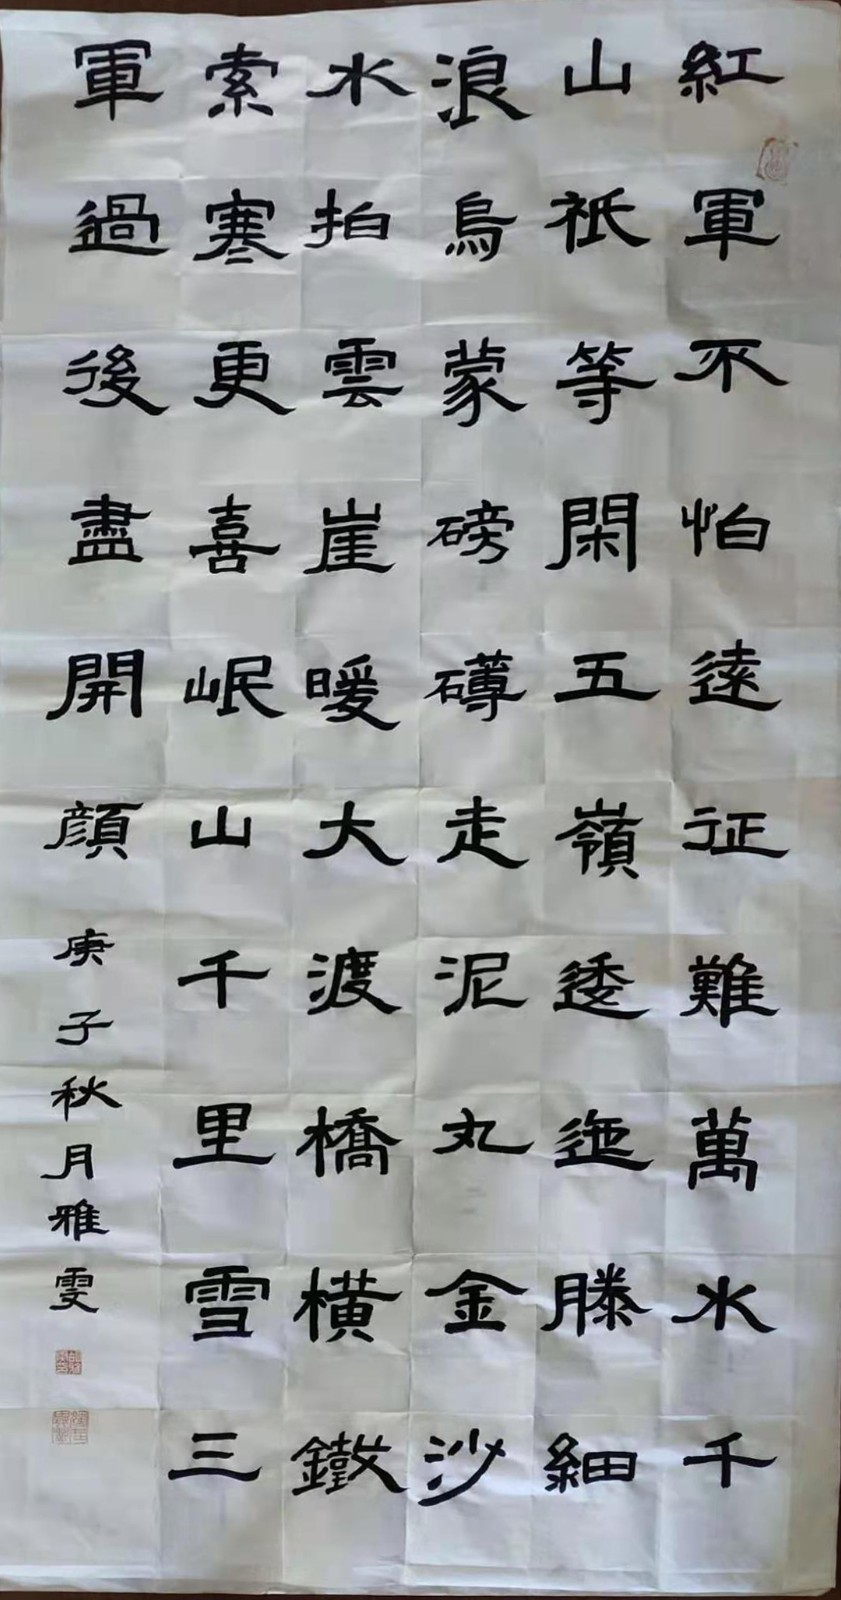 紅軍不怕遠征難萬水千
山祇等閑五嶺逶迤滕細
浪烏蒙磅礴走泥丸金沙
水拍雲崖暖大渡橋橫鐵
索寒更喜岷山千里雪三
軍過後盡開顏
庚子秋月雅雯